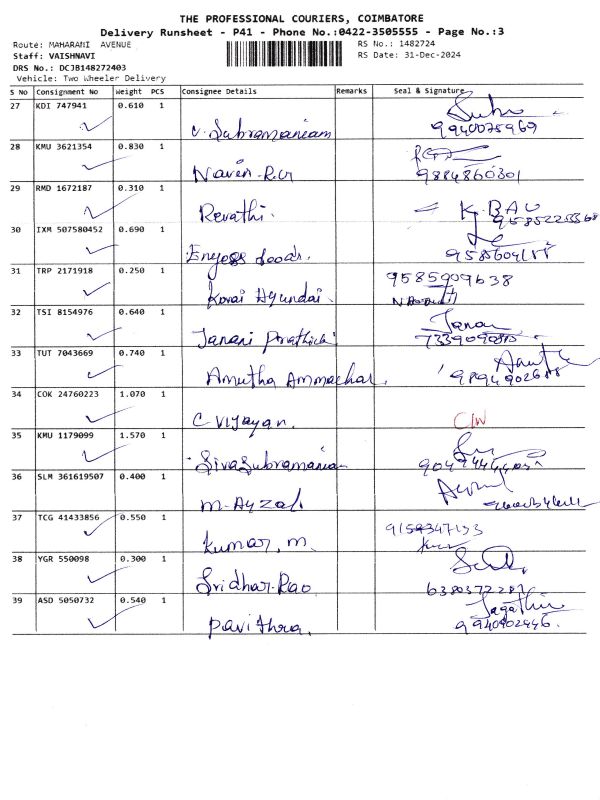 THE PROFESSIONAL COURIERS, COIMBATORE
Delivery Runsheet - P41 - Phone No.:0422-3505555 - Page No.:3
Route: MAHARANI AVENUE
RS No.: 1482724
Staff: VAISHNAVI
RS Date: 31-Dec-2024
DRS No.: DCJB148272403
Vehicle: Two Wheeler Delivery
S No Consignment No Weight PCS Consignee Details Remarks Seal & Signature
27 KDI 747941 0.610 1
V. Subramaniam 9940075969
28 KMU 3621354 0.830 1
Naven R.V 9884860301
29 RMD 1672187 0.310 1
Revathi. K. BAU
30 IXM 507580452 0.690 1
31 TRP 2171918 0.250 1 9585909638
Kovai Hyundai
32 TSI 8154976 0.640 1 Janan
Janani
33 TUT 7043669 0.740 1
Amutha Ammachal
34 COK 24760223 1.070 1
C Vijayan. C/W
35 KMU 1179099 1.570 1
Sivasubramanian
36 SLM 361619507 0.400 1
37 TCG 41433856 0.550 1
Kumar. M.
38 YGR 550098 0.300 1
Sridhar Rao
39 ASD 5050732 0.540 1
Pavithra. 9940902446.